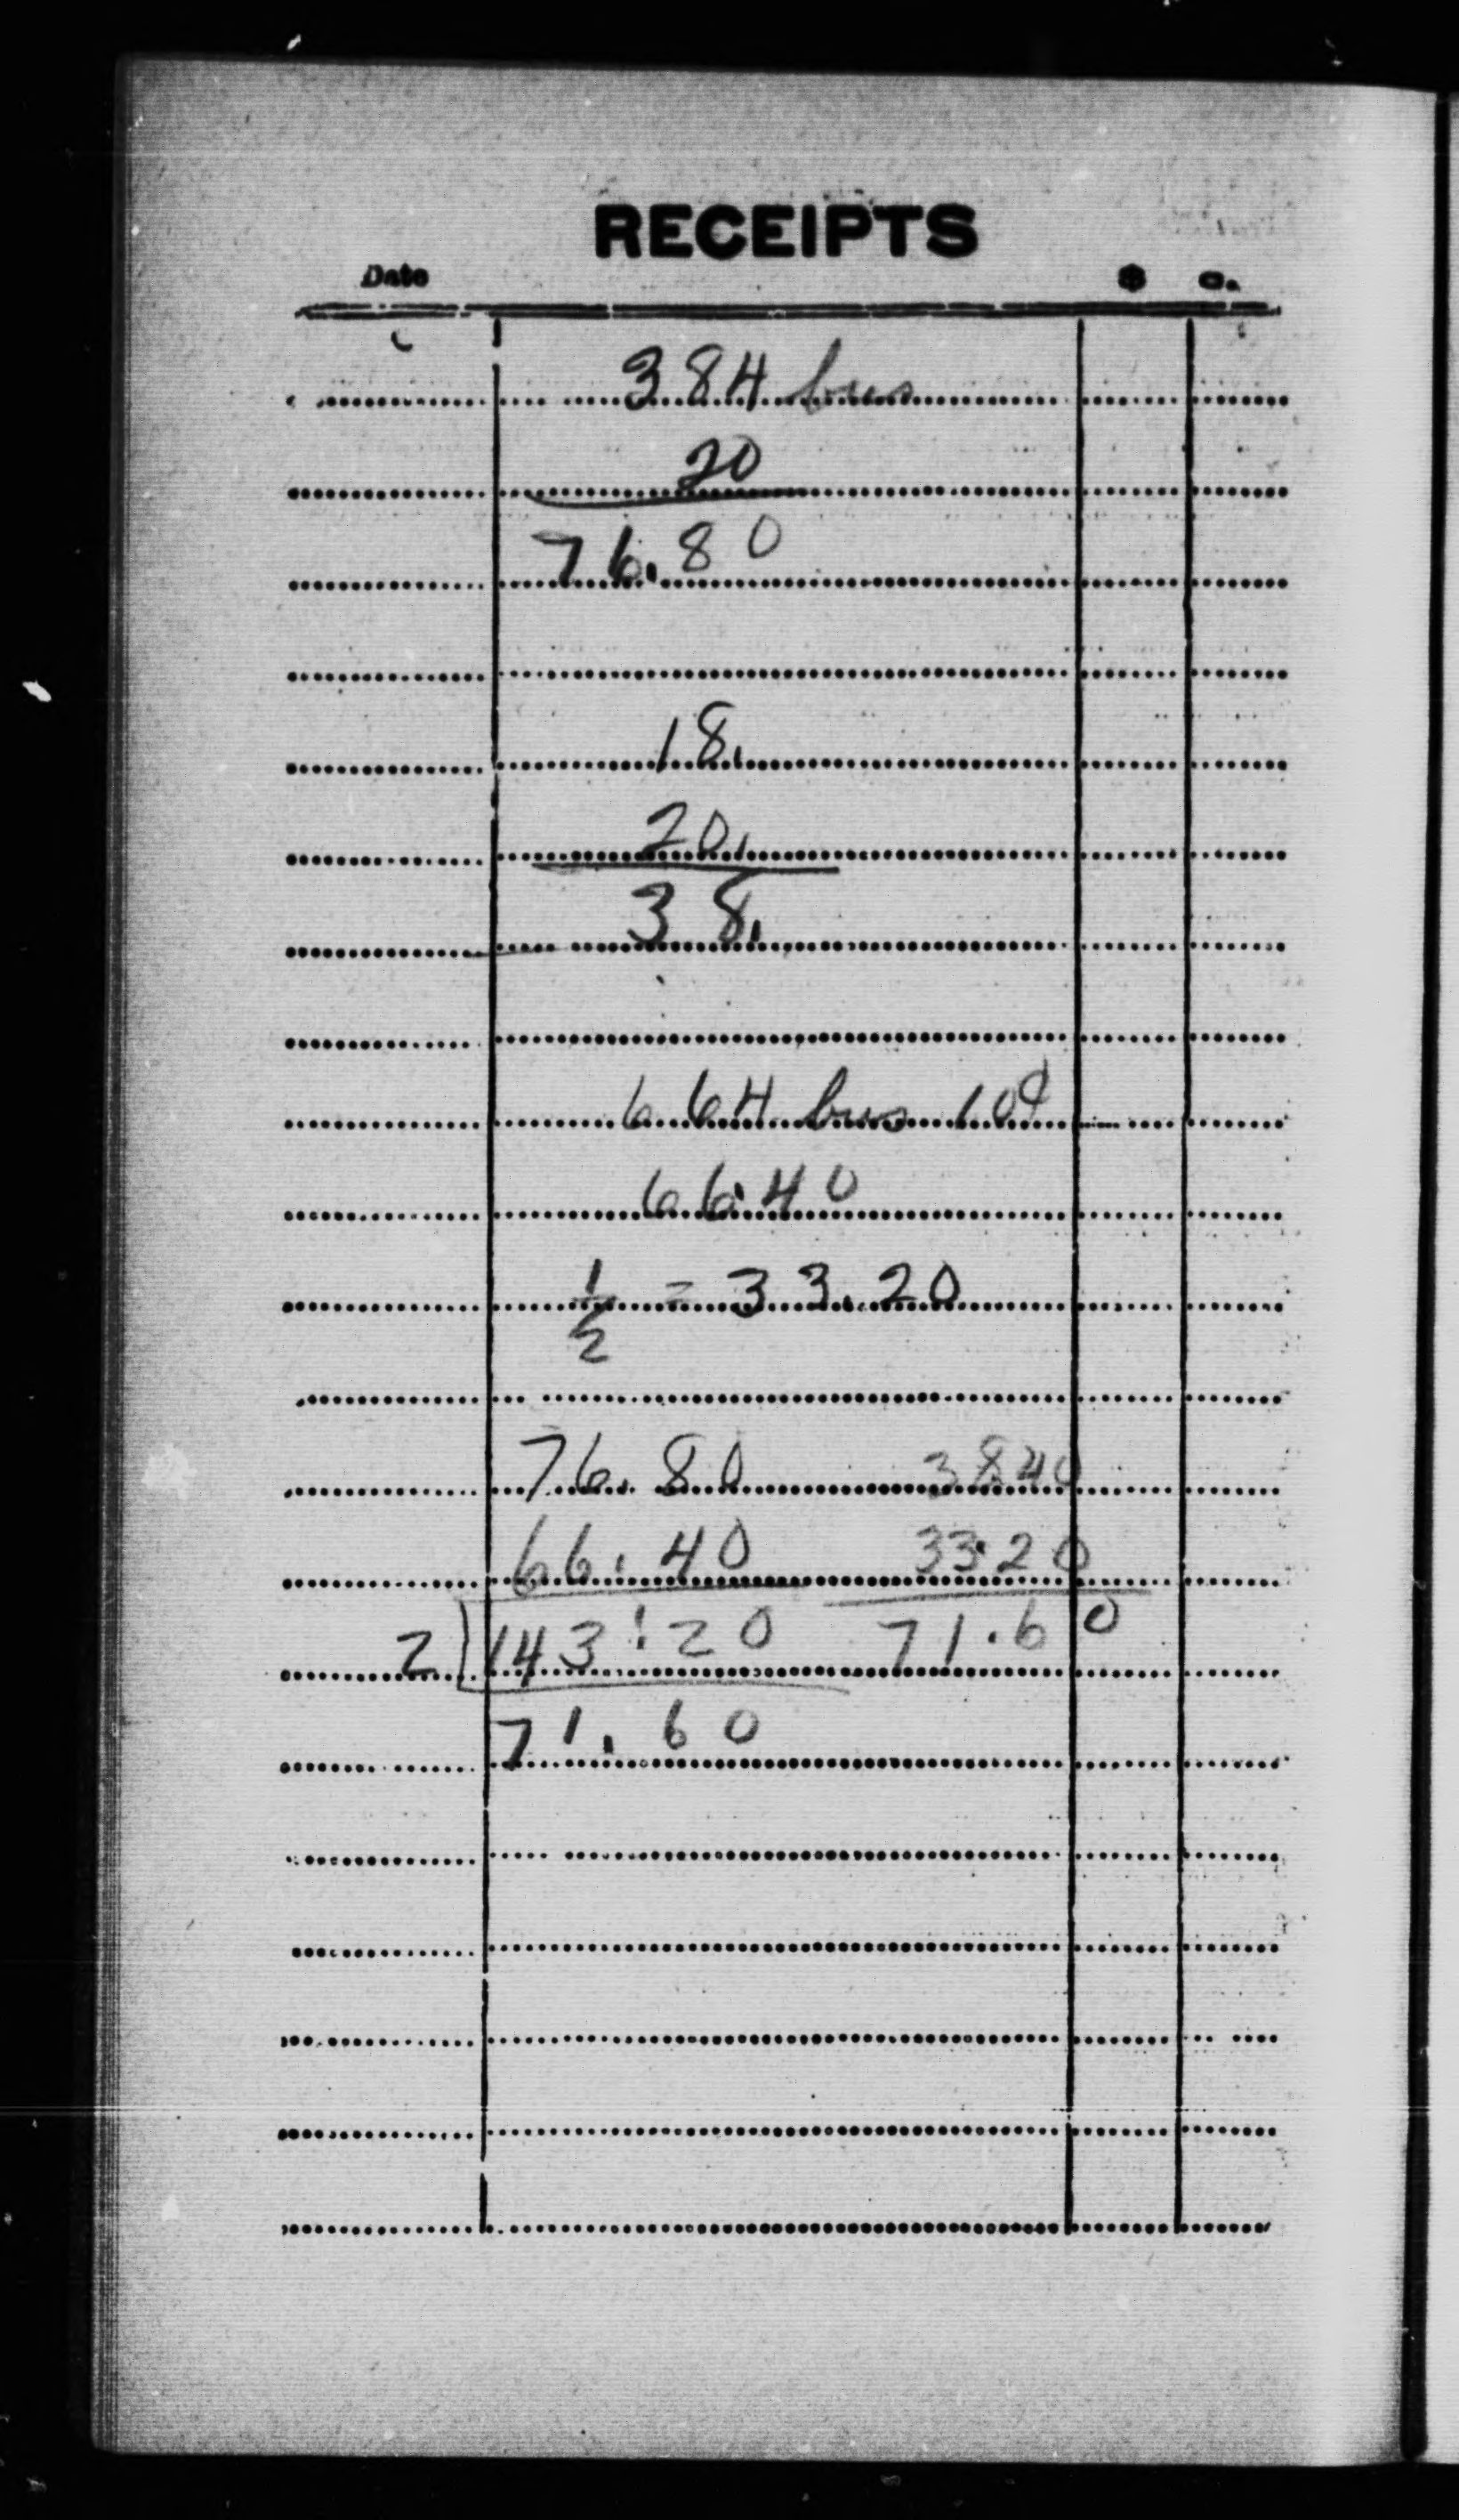 RECEIPTS
Date $ c.
384 bus
20
76.80
18.
20.
38.
664 bus 10¢
66.40
1/2 = 33.20
76.80 3840
66.40 33.20
2 143.20 71.60
71.60